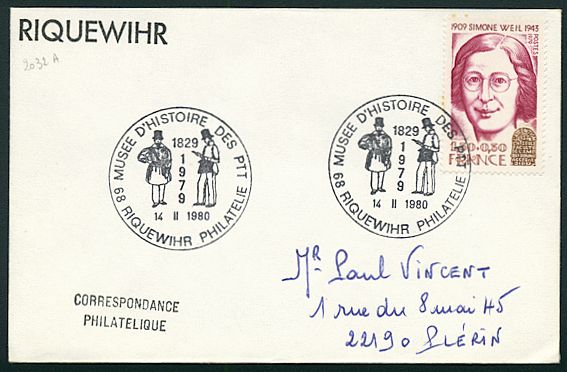 RIQUEWIHR
2032 A
1909 SIMONE WEIL 1943
POSTES 1979
1,30+0,30
FRANCE
MUSEE D'HISTOIRE DES PTT
1829
1979
14 II 1980
68 RIQUEWIHR PHILATELIE
MUSEE D'HISTOIRE DES PTT
1829
1979
14 II 1980
68 RIQUEWIHR PHILATELIE
Mr Paul VINCENT
1 rue du 8 mai 45
22190 PLÉRIN
CORRESPONDANCE
PHILATELIQUE